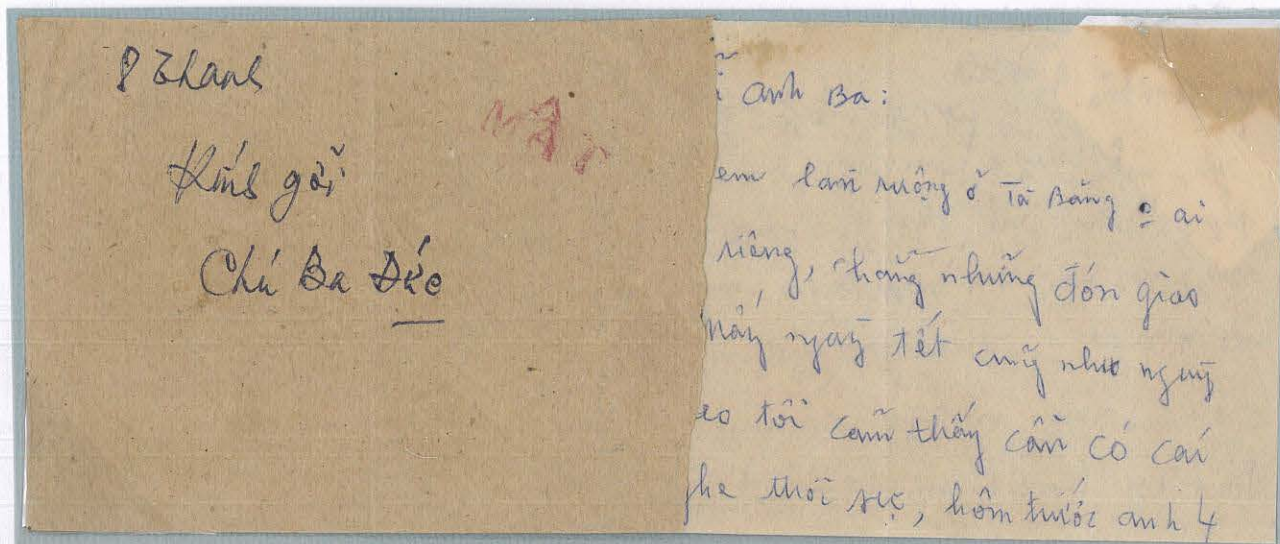 8 Thanh
MẬT
Kính gởi
Chú Ba Đức
anh Ba:
em làm ruộng ở Tà Băng ai
riêng, chẳng những đón giao
mấy ngày tết cũng như ngày
tôi cảm thấy cần có cái
thời sự, hôm trước anh 4